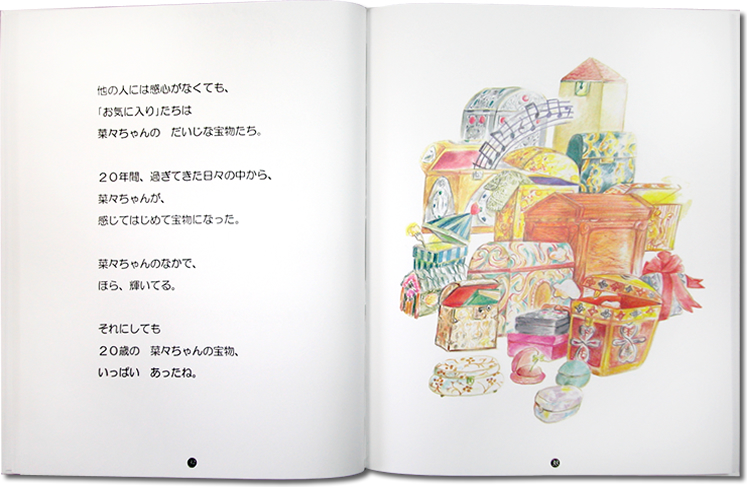 他の人には感心がなくても、
「お気に入り」たちは
菜々ちゃんの　だいじな宝物たち。
２０年間、過ぎてきた日々の中から、
菜々ちゃんが、
感じてはじめて宝物になった。
菜々ちゃんのなかで、
ほら、輝いてる。
それにしても
２０歳の　菜々ちゃんの宝物、
いっぱい　あったね。